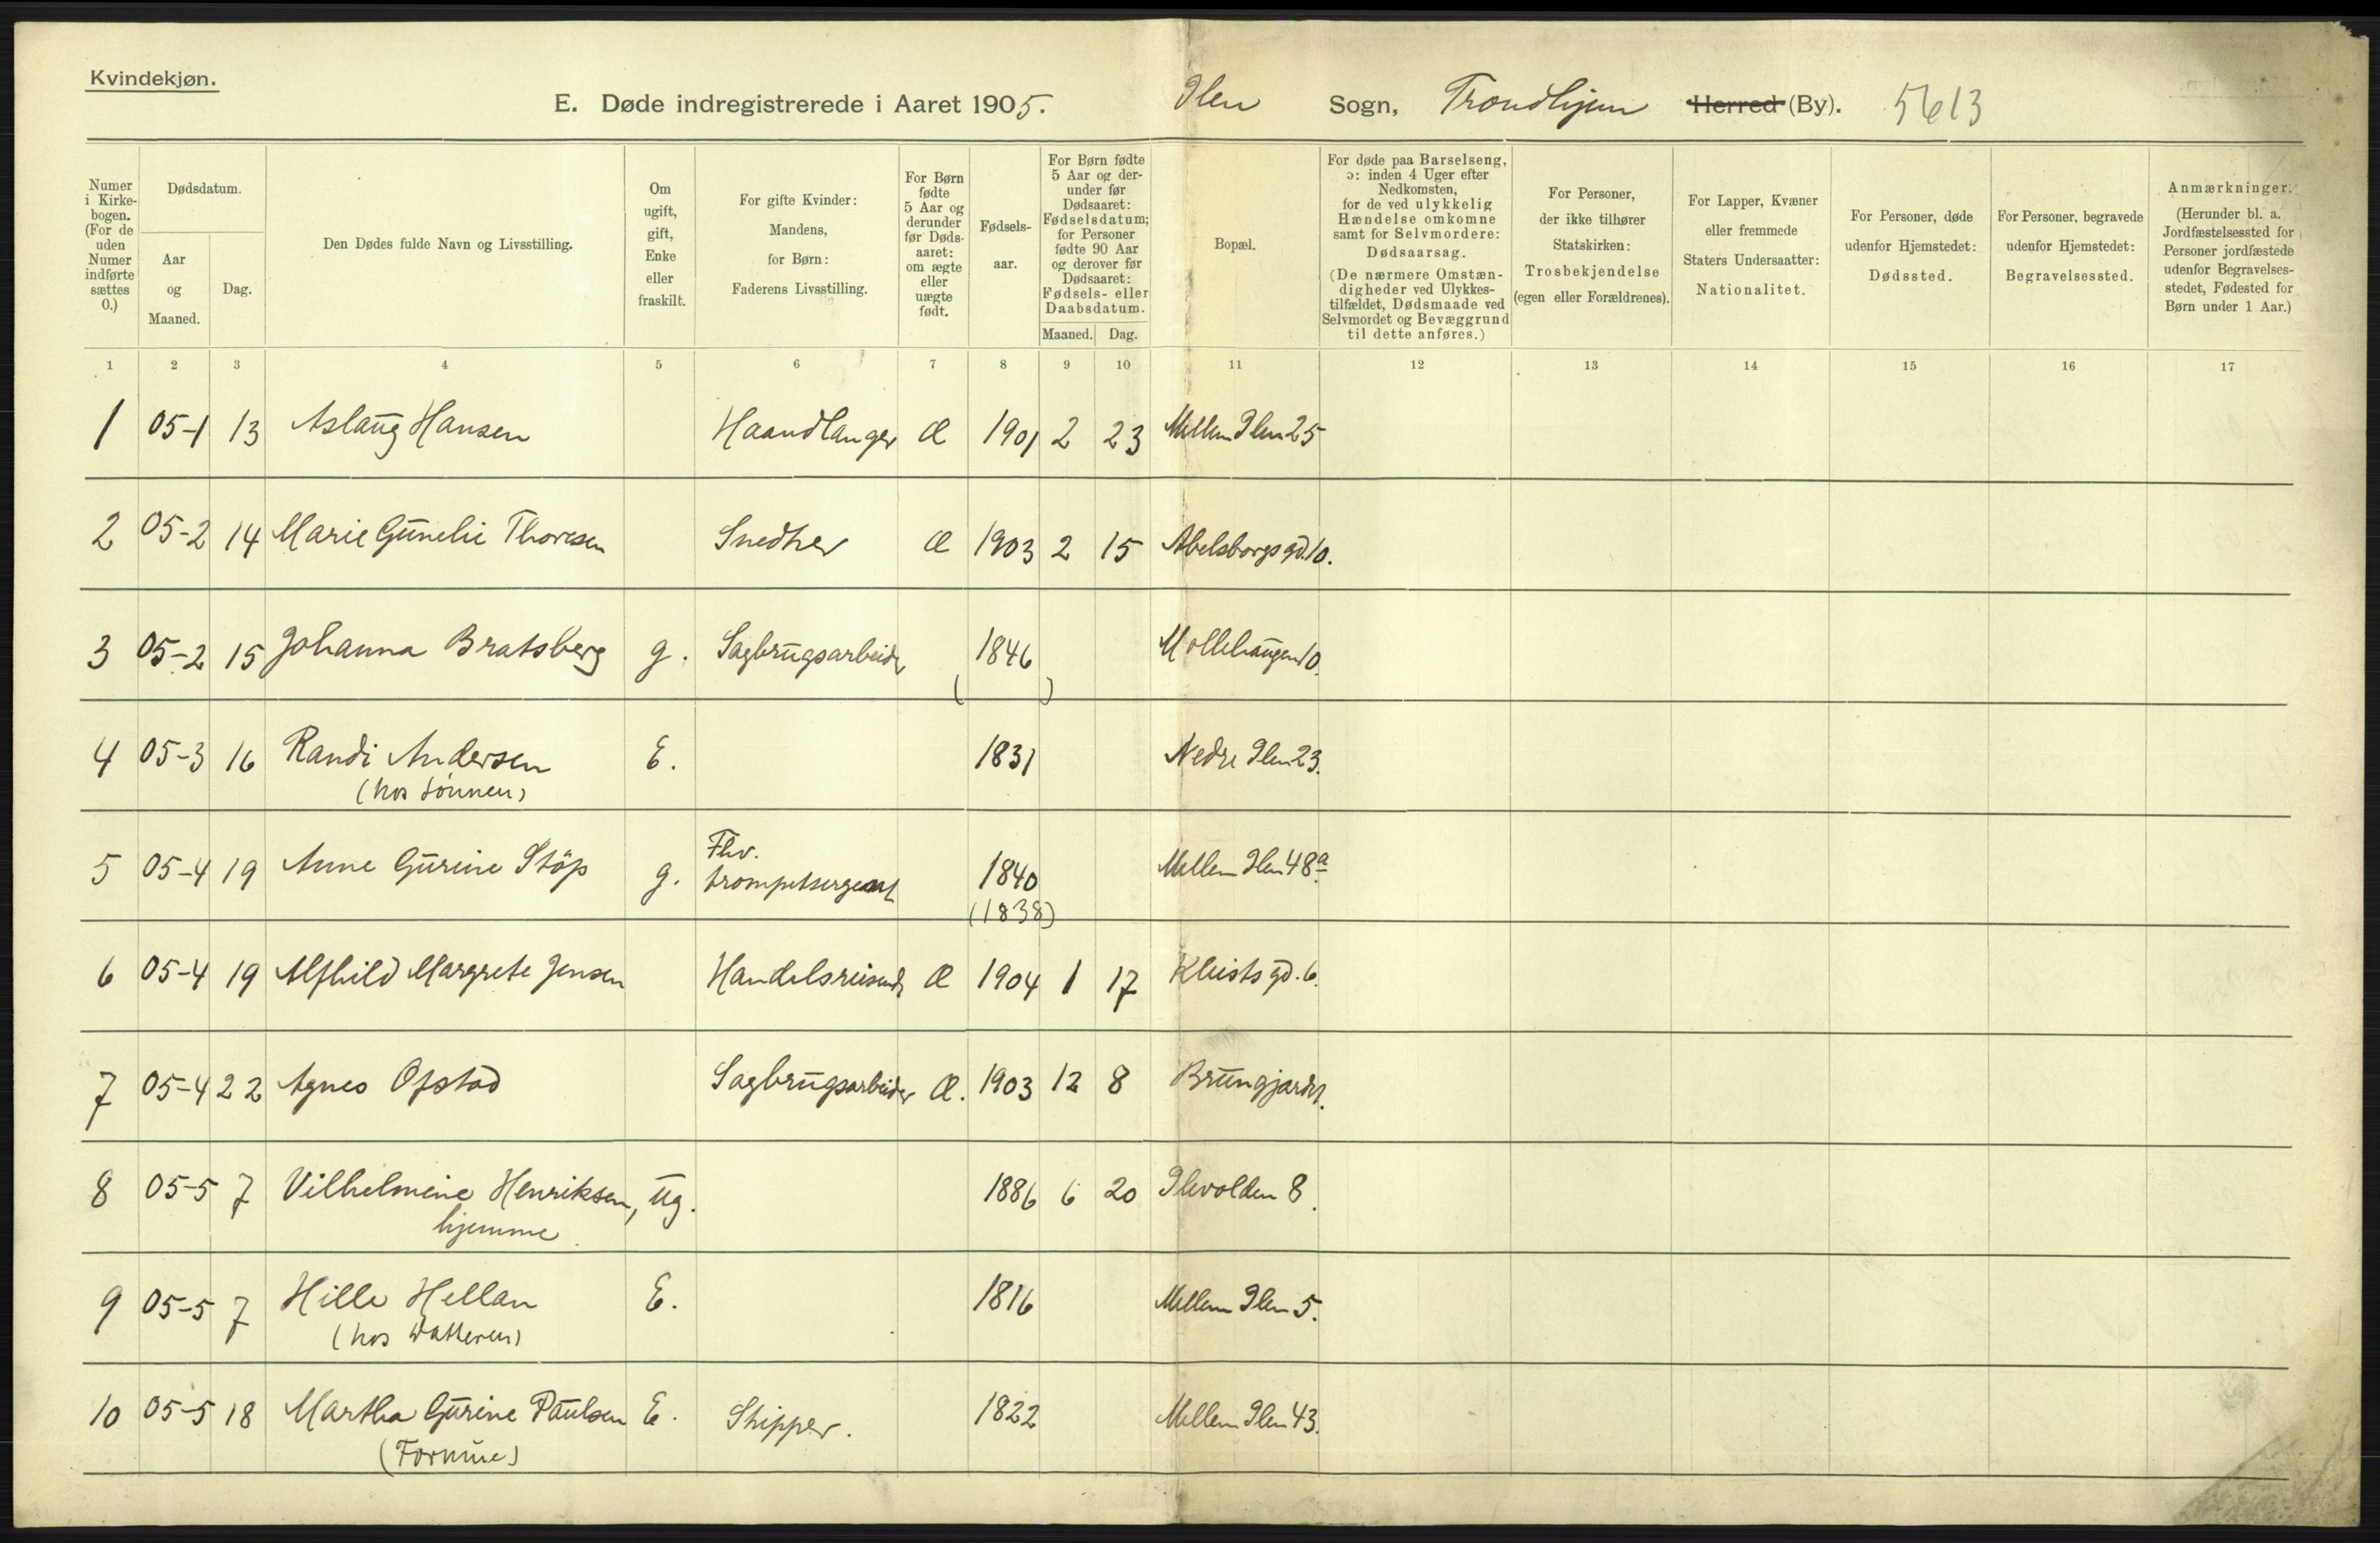 Kvindekjøn.
E. Døde indregistrerede i Aaret 1905. Ilen Sogn, Trondhjem Herred (By). 5613
Numer i Kirkebogen. (For de uden Numer indførte sættes 0.)
Dødsdatum.
Aar og Maaned.
Dag.
Den Dødes fulde Navn og Livsstilling.
Om ugift, gift, Enke eller fraskilt.
For gifte Kvinder: Mandens, for Børn: Faderens Livsstilling.
For Børn fødte 5 Aar og derunder før Dødsaaret: om ægte eller uægte født.
Fødselsaar.
For Børn fødte 5 Aar og derunder før Dødsaaret: Fødselsdatum; for Personer fødte 90 Aar og derover før Dødsaaret: Fødsels- eller Daabsdatum.
Maaned. Dag.
Bopæl.
For døde paa Barselseng, ɔ: inden 4 Uger efter Nedkomsten, for de ved ulykkelig Hændelse omkomne samt for Selvmordere: Dødsaarsag. (De nærmere Omstændigheder ved Ulykkestilfældet, Dødsmaade ved Selvmordet og Bevæggrund til dette anføres.)
For Personer, der ikke tilhører Statskirken: Trosbekjendelse (egen eller Forældrenes).
For Lapper, Kvæner eller fremmede Staters Undersaatter: Nationalitet.
For Personer, døde udenfor Hjemstedet: Dødssted.
For Personer, begravede udenfor Hjemstedet: Begravelsessted.
Anmærkninger. (Herunder bl. a. Jordfæstelsessted for Personer jordfæstede udenfor Begravelsesstedet, Fødested for Børn under 1 Aar.)
1 2 3 4 5 6 7 8 9 10 11 12 13 14 15 16 17
1 05-1 13 Aslaug Hansen Haandlanger Æ 1901 2 23 Mellem Ilen 25
2 05-2 14 Marie Gunelie Thoresen Snedker Æ 1903 2 15 Abelsborgs gd. 10.
3 05-2 15 Johanna Bratsberg g. Sagbrugsarbeider 1846 Møllehaugen 10.
( )
4 05-3 16 Randi Andersen E. 1831 Nedre Ilen 23.
(hos Sønnen)
5 05-4 19 Anne Gurine Støp g. Fhv. trompetsergeant 1840 Mellem Ilen 48a
(1838)
6 05-4 19 Alfhild Margrete Jensen Handelsreisende Æ 1904 1 17 Kleists gd. 6.
7 05-4 22 Agnes Ofstad Sagbrugsarbeider Æ. 1903 12 8 Brungjærdet.
8 05-5 7 Vilhelmine Henriksen, ug. 1886 6 20 Ilevolden 8.
hjemme
9 05-5 7 Hille Hellan E. 1816 Mellem Ilen 5.
(hos Datteren)
10 05-5 18 Martha Gurine Paulsen E. Skipper. 1822 Mellem Ilen 43.
(Formue)